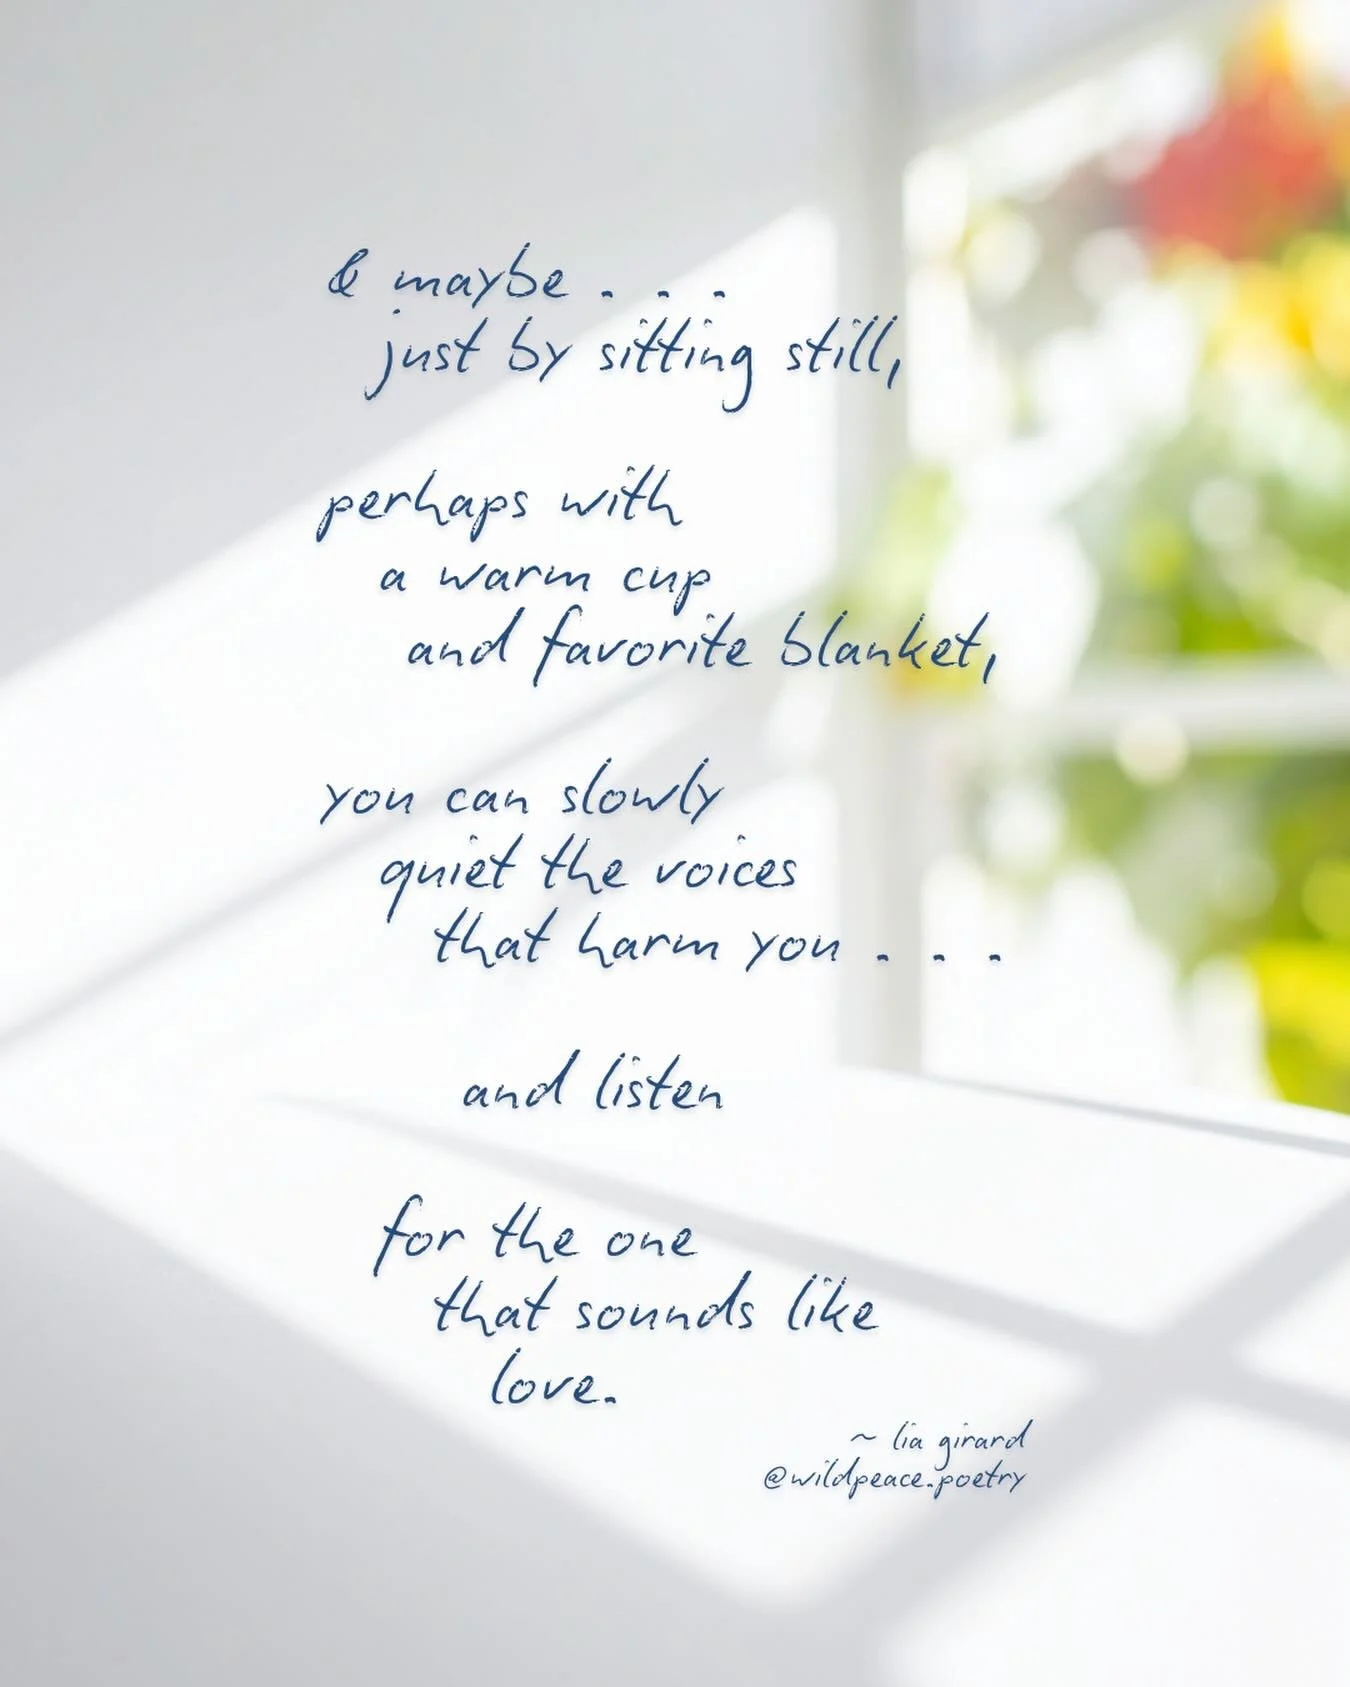 & maybe . . .
just by sitting still,
perhaps with
a warm cup
and favorite blanket,
you can slowly
quiet the voices
that harm you . . .
and listen
for the one
that sounds like
love.
~ lia girard
@wildpeace.poetry